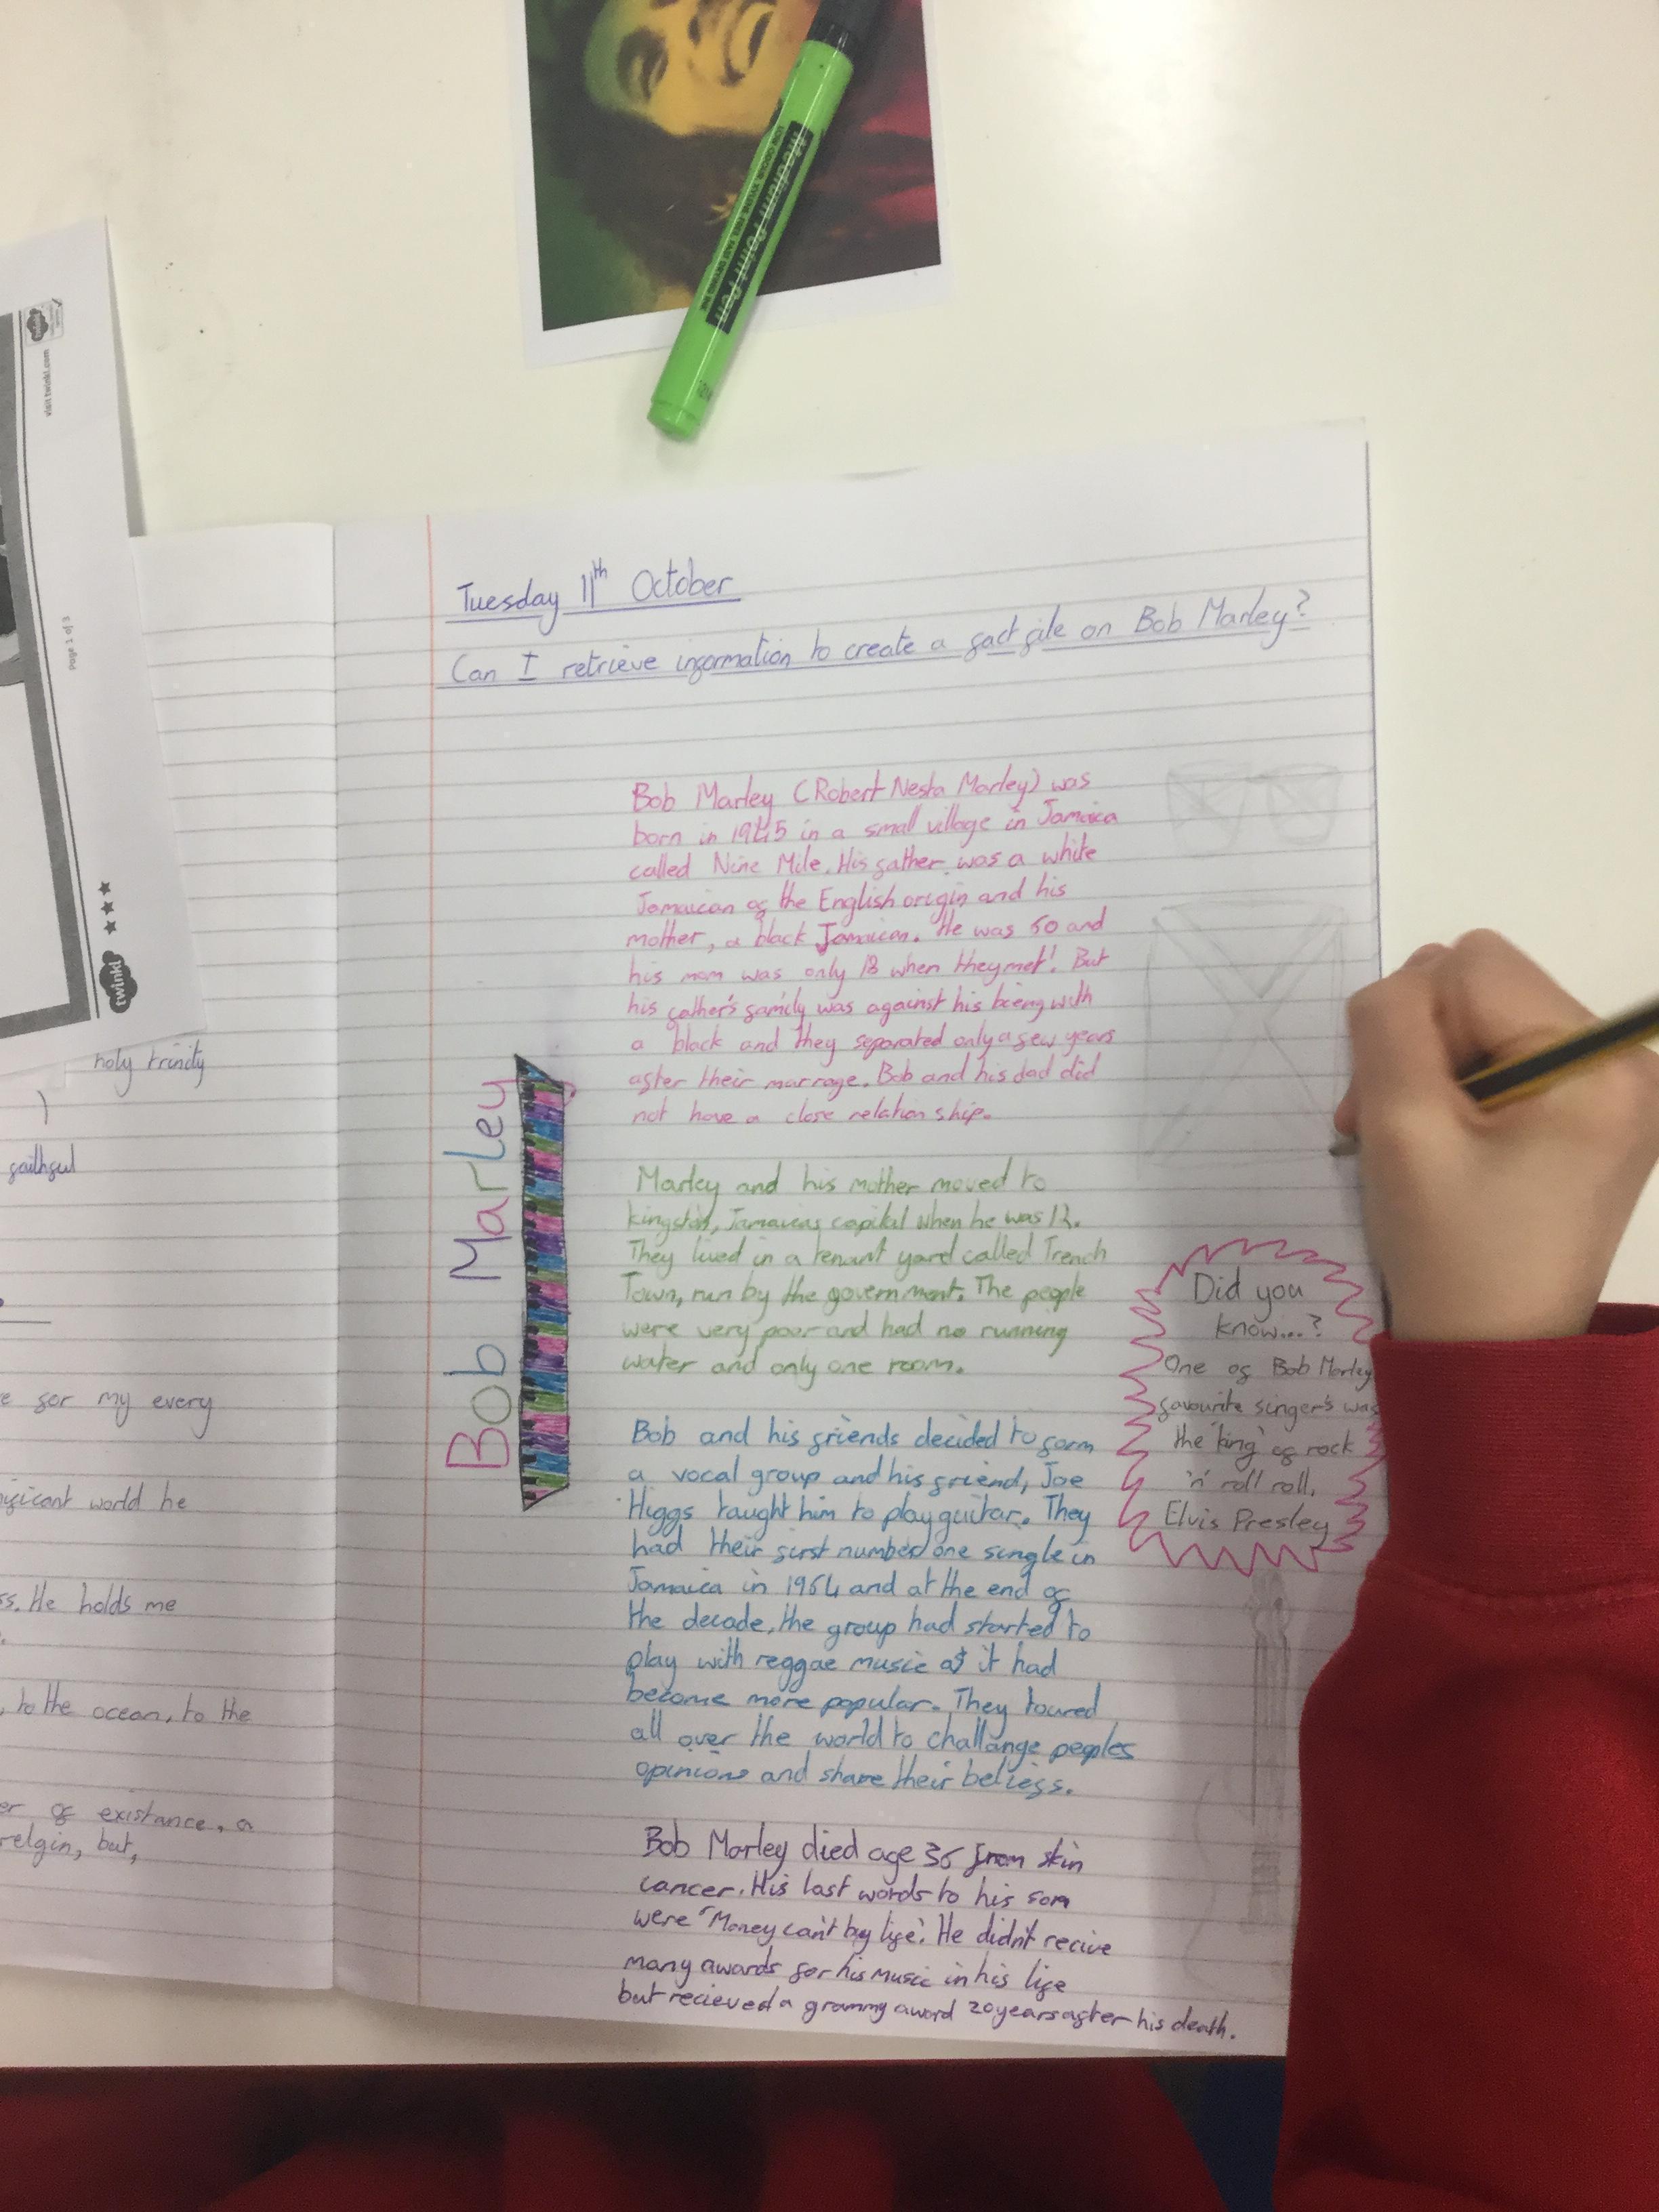 Medium Point Pen
visit twinkl.com
Page 2 of 3
twinkl
holy trinity
faithful
e for my every
world he
ss. He holds me
, to the ocean, to the
er of existance, a
relgin, but,
Tuesday 11th October
Can I retrieve information to create a fact file on Bob Marley?
Bob Marley
Bob Marley (Robert Nesta Marley) was
born in 1945 in a small village in Jamaica
called Nine Mile. His father was a white
Jamaican of the English origin and his
mother, a black Jamaican. He was 50 and
his mom was only 18 when they met! But
his father's family was against his being with
a black and they separated only a few years
after their marrage. Bob and his dad did
not have a close relation ship.
Marley and his mother moved to
kingston, Jamaicas capital when he was 12.
They lived in a tenant yard called Trench
Town, run by the government. The people
were very poor and had no running
water and only one room.
Bob and his friends decided to form
a vocal group and his friend, Joe
Higgs taught him to play guitar. They
had their first number one single in
Jamaica in 1964 and at the end of
the decade, the group had started to
play with reggae music as it had
become more popular. They toured
all over the world to challange peoples
opinions and share their beliefs.
Bob Marley died age 36 from skin
cancer. His last words to his son
were 'Money can't buy life'. He didn't recive
many awards for his music in his life
but recieved a grammy award 20 years after his death.
Did you
know...?
One of Bob Marley
favourite singer's was
the 'king' of rock
'n' roll roll,
Elvis Presley